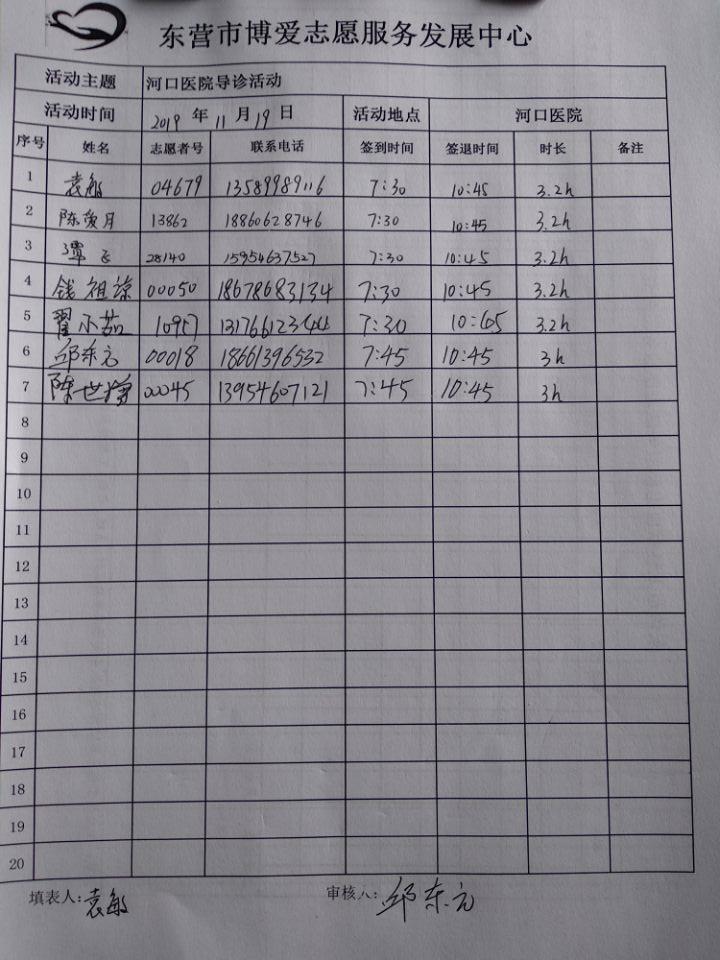 东营市博爱志愿服务发展中心
活动主题 河口医院导诊活动
活动时间 2019 年 11 月 19 日 活动地点 河口医院
序号 姓名 志愿者号 联系电话 签到时间 签退时间 时长 备注
1 袁敏 04679 13589989116 7:30 10:45 3.2h
2 陈爱月 13862 18860628746 7:30 10:45 3.2h
3 谭飞 28140 15954637527 7:30 10:45 3.2h
4 钱祖琼 00050 18678683134 7:30 10:45 3.2h
5 翟小茹 10957 13176612344 7:30 10:45 3.2h
6 邱东方 00018 18661396532 7:45 10:45 3h
7 陈世 00045 13954607121 7:45 10:45 3h
8
9
10
11
12
13
14
15
16
17
18
19
20
填表人:袁敏 审核人:邱东方